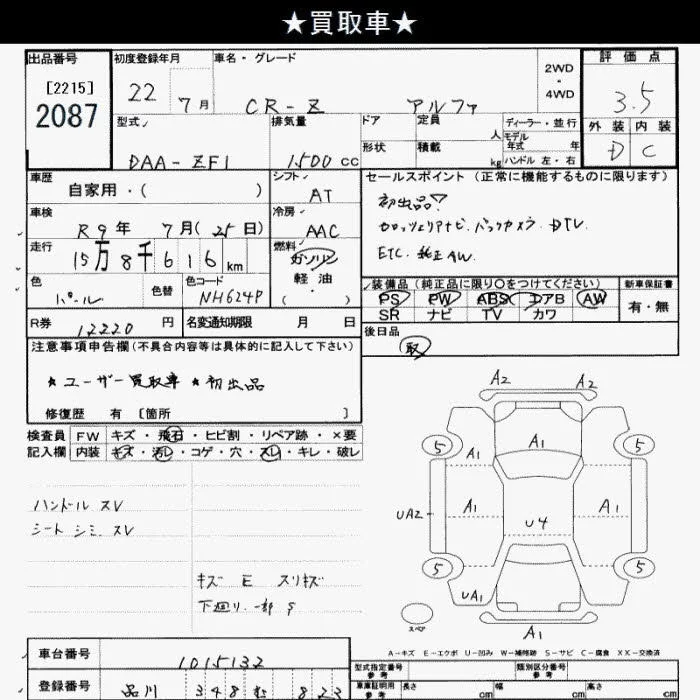 ★買取車★
出品番号 初度登録年月 車名・グレード 2WD・4WD 評価点
[2215] 2087 22 7月 CR-Z アルファ 3.5
型式 排気量 ドア 定員 人 ディーラー・並行 外装 内装
形状 積載 kg モデル年式 年 ハンドル 左・右
DAA-ZF1 1500cc D C
車歴 自家用・( ) シフト AT セールスポイント (正常に機能するものに限ります)
車検 R9年 7月(25日) 冷房 AAC 初出品
カロッツェリアナビ.バックカメラ.DTV.
走行 15万8千616km 燃料 ガソリン 軽油 ( ) ETC.純正AW.
色 パール 色替 色コード NH624P 装備品(純正品に限り○をつけてください) 新車保証書
PS PW ABS エアB AW 有・無
SR ナビ TV カワ
R券 12220円 名変通知期限 月 日 後日品
取
注意事項申告欄(不具合内容等は具体的に記入して下さい)
★ユーザー買取車 ★初出品
修復歴 有 [箇所 ]
検査員 FW キズ・飛石・ヒビ割・リペア跡・×要
記入欄 内装 キズ・汚レ・コゲ・穴・スレ・キレ・破レ
ハンドル スレ
シート シミ.スレ
キズ E スリキズ
下廻り.一部S
A2 A2
5 A1 A1 5
UA2 A1 U4 A1 A1
5 5
UA1
スペア A1
A-キズ E-エクボ U-凹み W-補修跡 S-サビ C-腐食 XX-交換済
車台番号 1015132 型式指定番号 参考 類別区分番号 参考
登録番号 品川 348 む 823 車庫証明用 参考 長さ cm 幅 cm 高さ cm